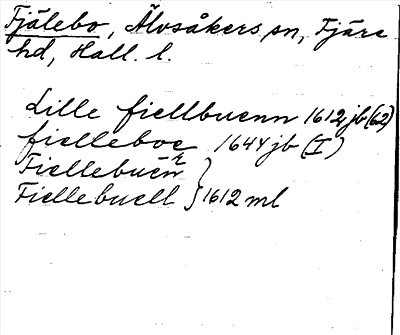 Fjälebo, Älvsåkers sn, Fjäre
hd, Hall. l.
Lille fiellbuenn 1612 jb (62)
fielleboe 1644 jb (I)
Fiellebuen
Fiellebuell } 1612 ml